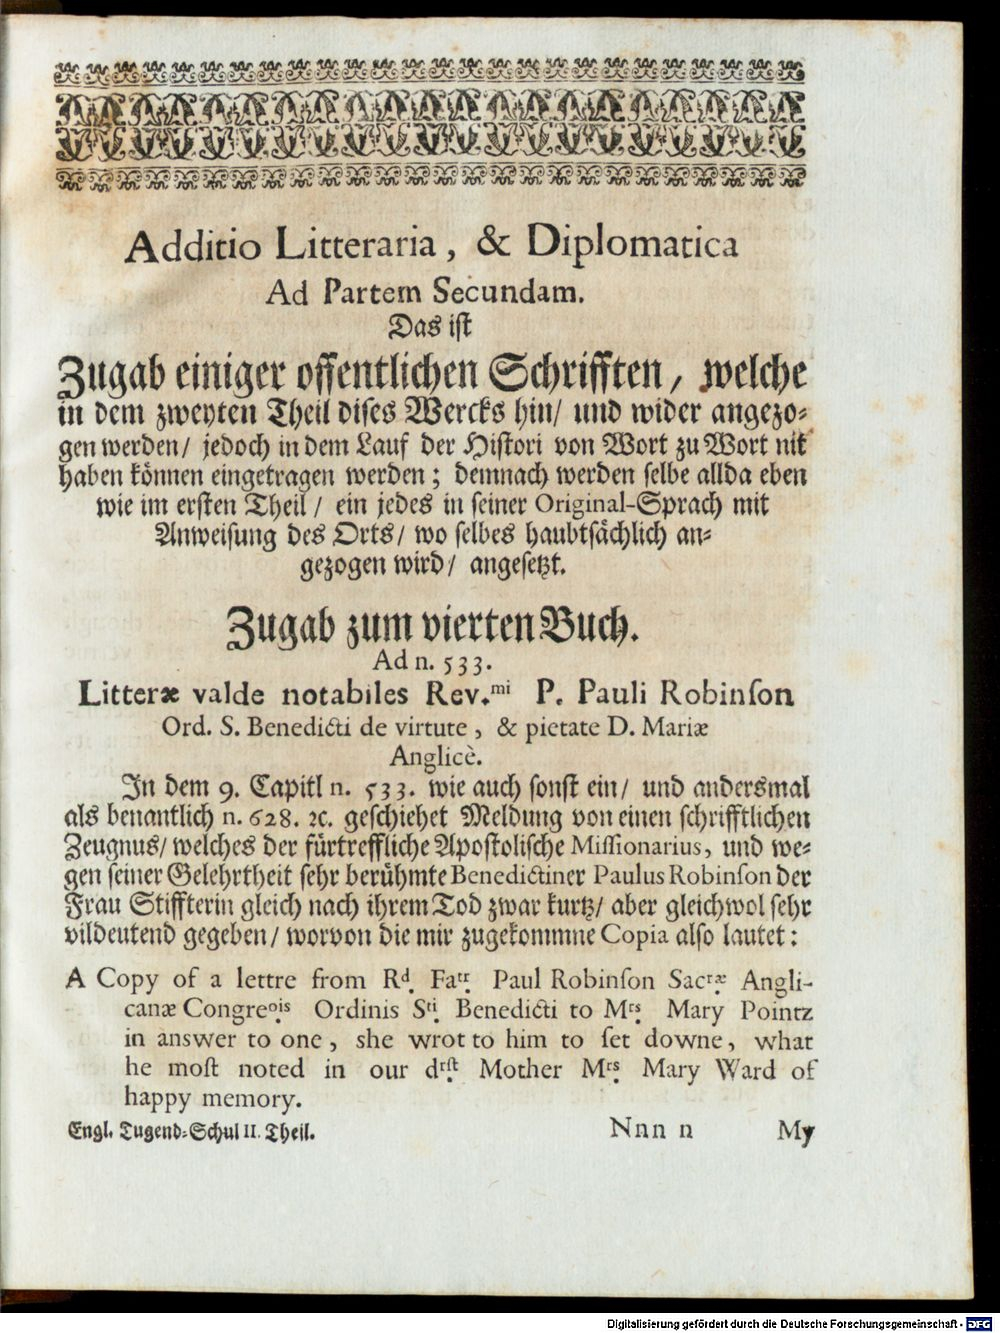 Additio Litteraria, & Diplomatica
Ad Partem Secundam.
Das ist
Zugab einiger offentlichen Schrifften, welche
in dem zweyten Theil dises Wercks hin/ und wider angezo-
gen werden/ jedoch in dem Lauf der Histori von Wort zu Wort nit
haben können eingetragen werden; demnach werden selbe allda eben
wie im ersten Theil/ ein jedes in seiner Original-Sprach mit
Anweisung des Orts/ wo selbes haubtsächlich an-
gezogen wird/ angesetzt.
Zugab zum vierten Buch.
Ad n. 533.
Litteræ valde notabiles Rev.mi P. Pauli Robinſon
Ord. S. Benedicti de virtute, & pietate D. Mariæ
Anglicè.
In dem 9. Capitl n. 533. wie auch sonst ein/ und andersmal
als benantlich n. 628. ꝛc. geschiehet Meldung von einen schrifftlichen
Zeugnus/ welches der fürtreffliche Apostolische Miſſionarius, und we-
gen seiner Gelehrtheit sehr berühmte Benedictiner Paulus Robinſon der
Frau Stiffterin gleich nach ihrem Tod zwar kurtz/ aber gleichwol sehr
vildeutend gegeben/ worvon die mir zugekommne Copia also lautet:
A Copy of a lettre from Rd. Fatr. Paul Robinſon Sacræ. Angli-
canæ Congreois. Ordinis Sti. Benedicti to Mrs. Mary Pointz
in answer to one, she wrot to him to ſet downe, what
he moſt noted in our drſt. Mother Mrs. Mary Ward of
happy memory.
Engl. Tugend-Schul II. Theil. Nnn n My
Digitalisierung gefördert durch die Deutsche Forschungsgemeinschaft - DFG